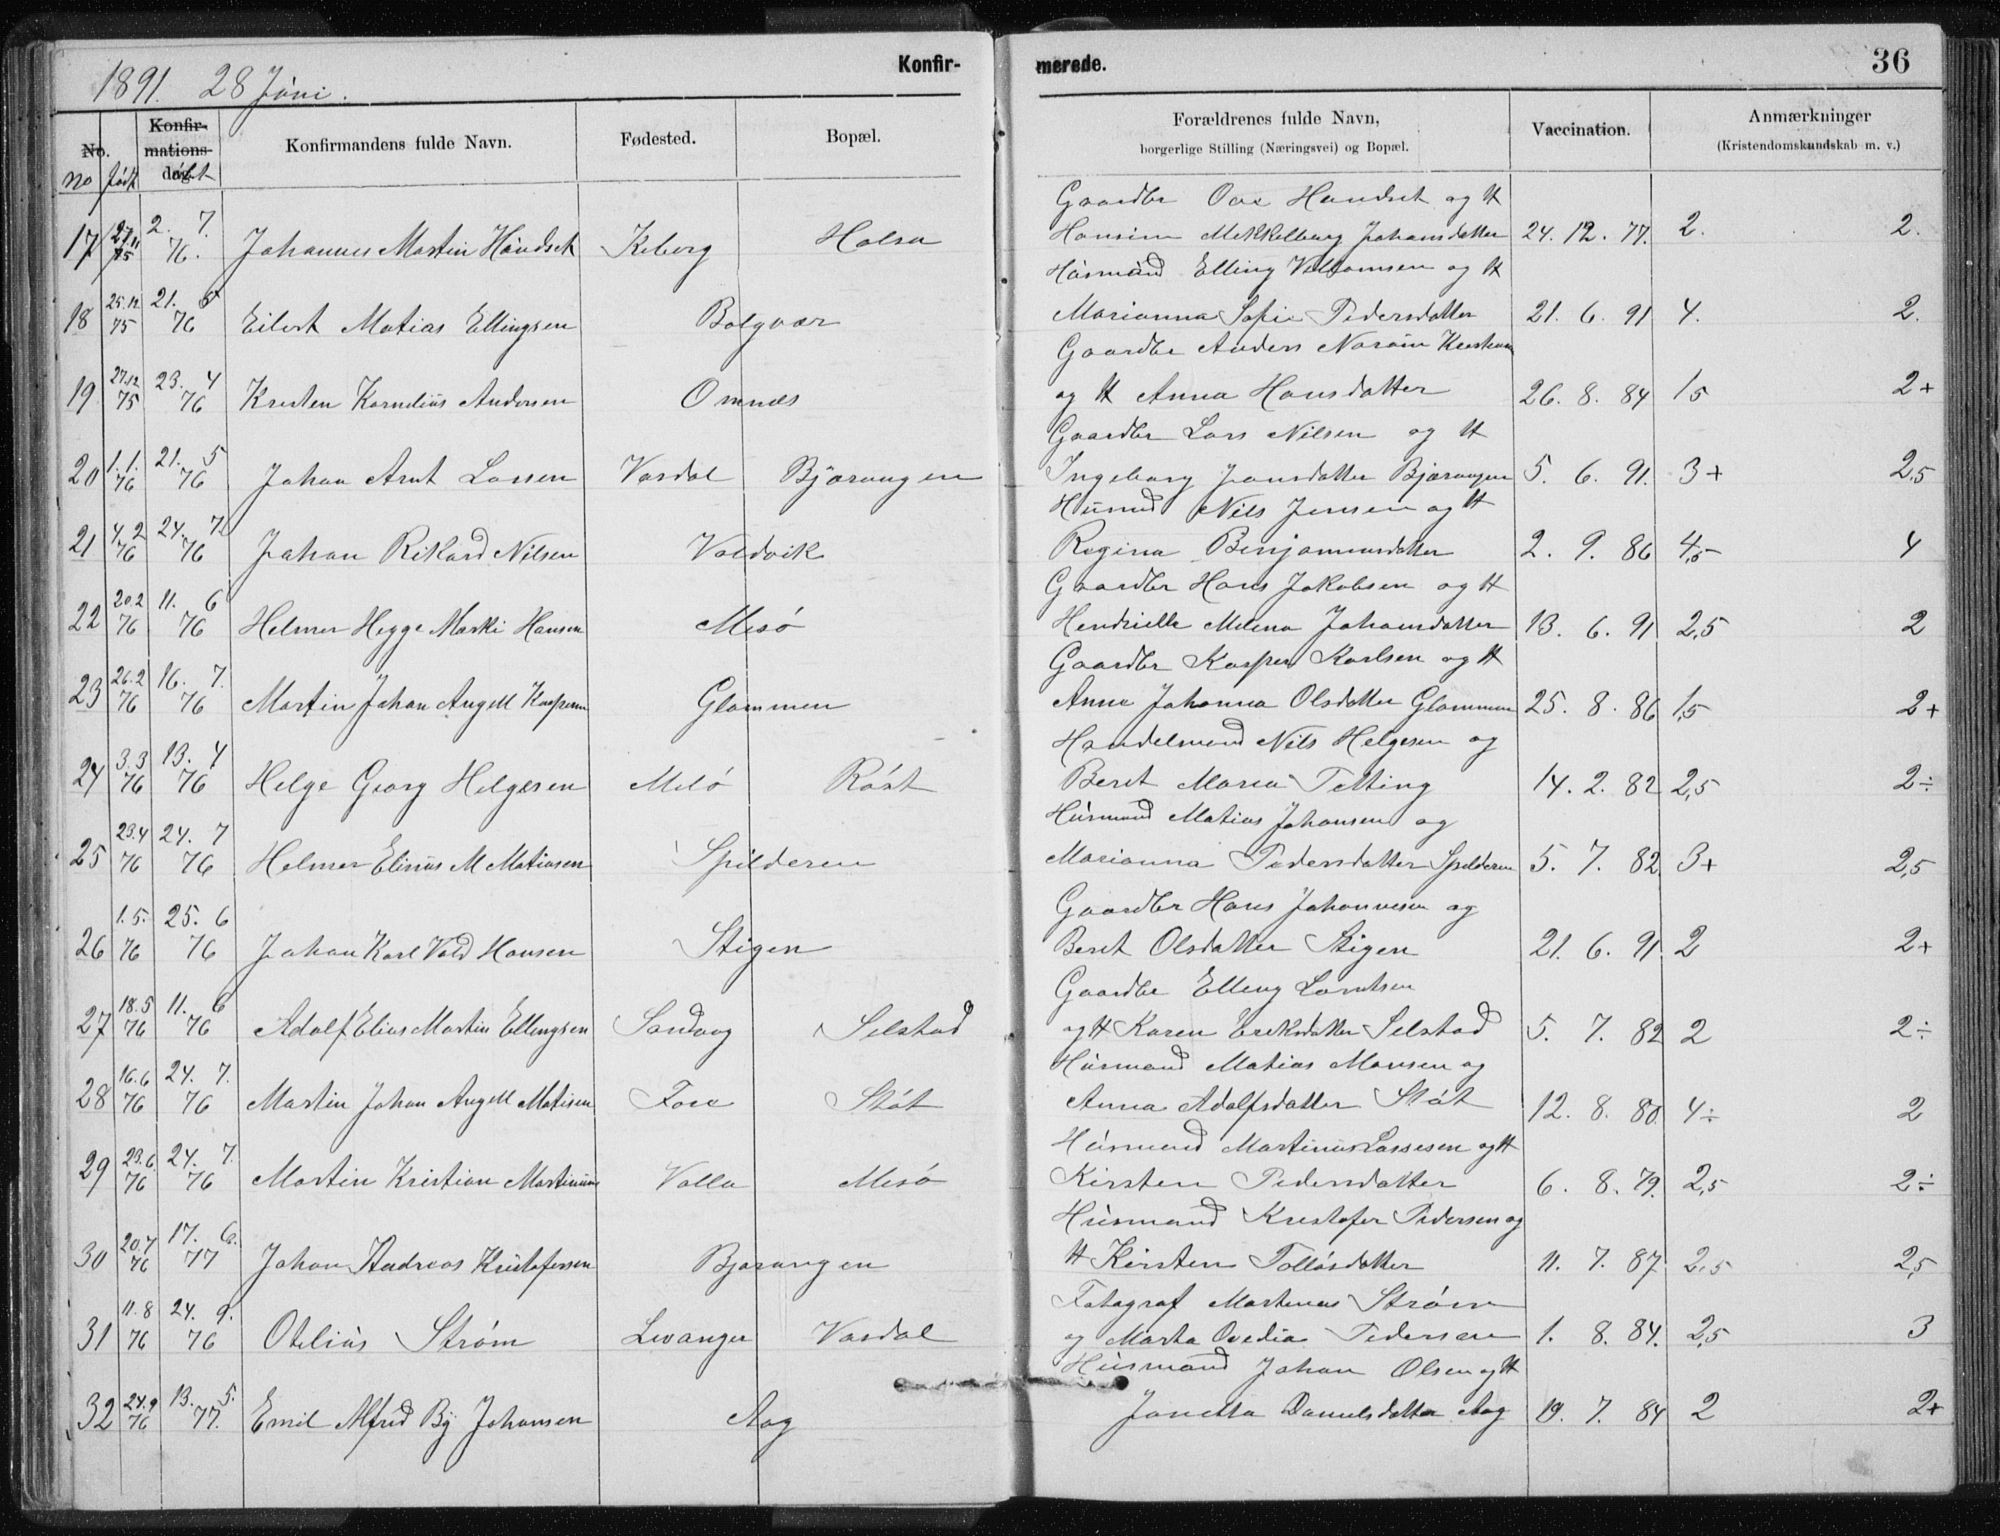 1891. 28 Júni.
Konfir- merede. 36
No. Konfir-mations-dag. Konfirmandens fulde Navn. Fødested. Bopæl. Forældrenes fulde Navn, borgerlige Stilling (Næringsvei) og Bopæl. Vaccination. Anmærkninger (Kristendomskundskab m. v.)
no født døbt
Gaardbr Ove Handset og H
17 27.11 75 2. 7. 76. Johannes Martin Handset Keberg Halsa Hansine Mekkelborg Johansdatter 24. 12. 77. 2. 2.
Húsmand Elling Villomsen og H
18 25.12 75 21. 5 76 Eilert Matias Ellingsen Bolgvær Marianna Sofie Pedersdatter 21. 6. 91 4. 2.
Gaardbr Anders Kristian
19 27.12 75 23. 4 76 Kristen Kornelius Andersen Omnes og H Anna Hansdatter 26. 8. 84 15 2+
Gaardbr Lars Nilsen og H
20 1.1. 76 21. 5 76 Johan Arnt Larsen Vasdal Bjærangen Ingeborg Jonsdatter Bjærangen 5. 6. 91. 3+ 2,5
Húsmd Nils Jensen og H
21 4.2 76 24. 7. 76 Johan Rikard Nilsen Valdvik Regina Benjaminsdatter 2. 9. 86 4,5 4
Gaardbr Hans Jakobsen og H
22 20.2 76 11. 6 76 Helmer Hegge Marki Hansen Mesø Melena Johansdatter 13. 6. 91 2,5 2
Gaardbr Kasper Karlsen og H
23 26.2 76 16. 7. 76 Martin Johan Angell Kaspersen Glommen Anne Johanna Olsdatter Glommen 25. 8. 86 1,5 2+
Handelmand Nils Helgesen og
24 3.3 76 13. 4 76 Helge Georg Helgesen Melö Röst Beret Maria Tetting 14. 2. 82 2,5 2÷
Húsmand Matias Johansen og
25 23.4 76 24. 7 76 Helmer Elinus M Matiasen Spilderen Marianna Pedersdatter Spilderen 5. 7. 82 3+ 2,5
Gaardbr Hans Johannesen og
26 1.5. 76 25. 6 76 Johan Karl Vold Hansen Stigen Beret Olsdatter Stigen 21. 6. 91. 2 2+
Gaardbr Elling Larntsen
27 18.5 76 11. 6 76 Adolf Elias Martin Ellingsen Sandvog Selstad og H Karen Eriksdatter Selstad 5. 7. 82 2 2÷
Húsmand Matias Monsen og
28 16.6 76 24. 7. 76 Martin Johan Angell Matisen Fore Stöt Anna Adolfsdatter Stöt 12. 8. 80. 4÷ 2
Húsmand Martinus Lassesen og H
29 23.6. 76 24. 7. 76 Martin Kristian Martinuss Valla Mesö Kirsten Pedersdatter 6. 8. 79. 2,5 2÷
Húsmand Kristofer Pedersen og
30 20.7 76 17. 6. 77 Johan Andreas Kristofersen Bjærangen H Kirsten Tolløsdatter 11. 7. 87 2,5 2,5
Fotograf Martinus Strøm
31 11.8 76 24. 9. 76 Otelius Strøm Levanger Vasdal og Marta Ovedia Pedersen 1. 8. 84. 2,5 3
Húsmand Johan Olsen og H
32 24.9 76 13. 5. 77. Emil Alfred By Johansen Aag Janetta Danielsdatter Aag 19. 7. 84 2 2+